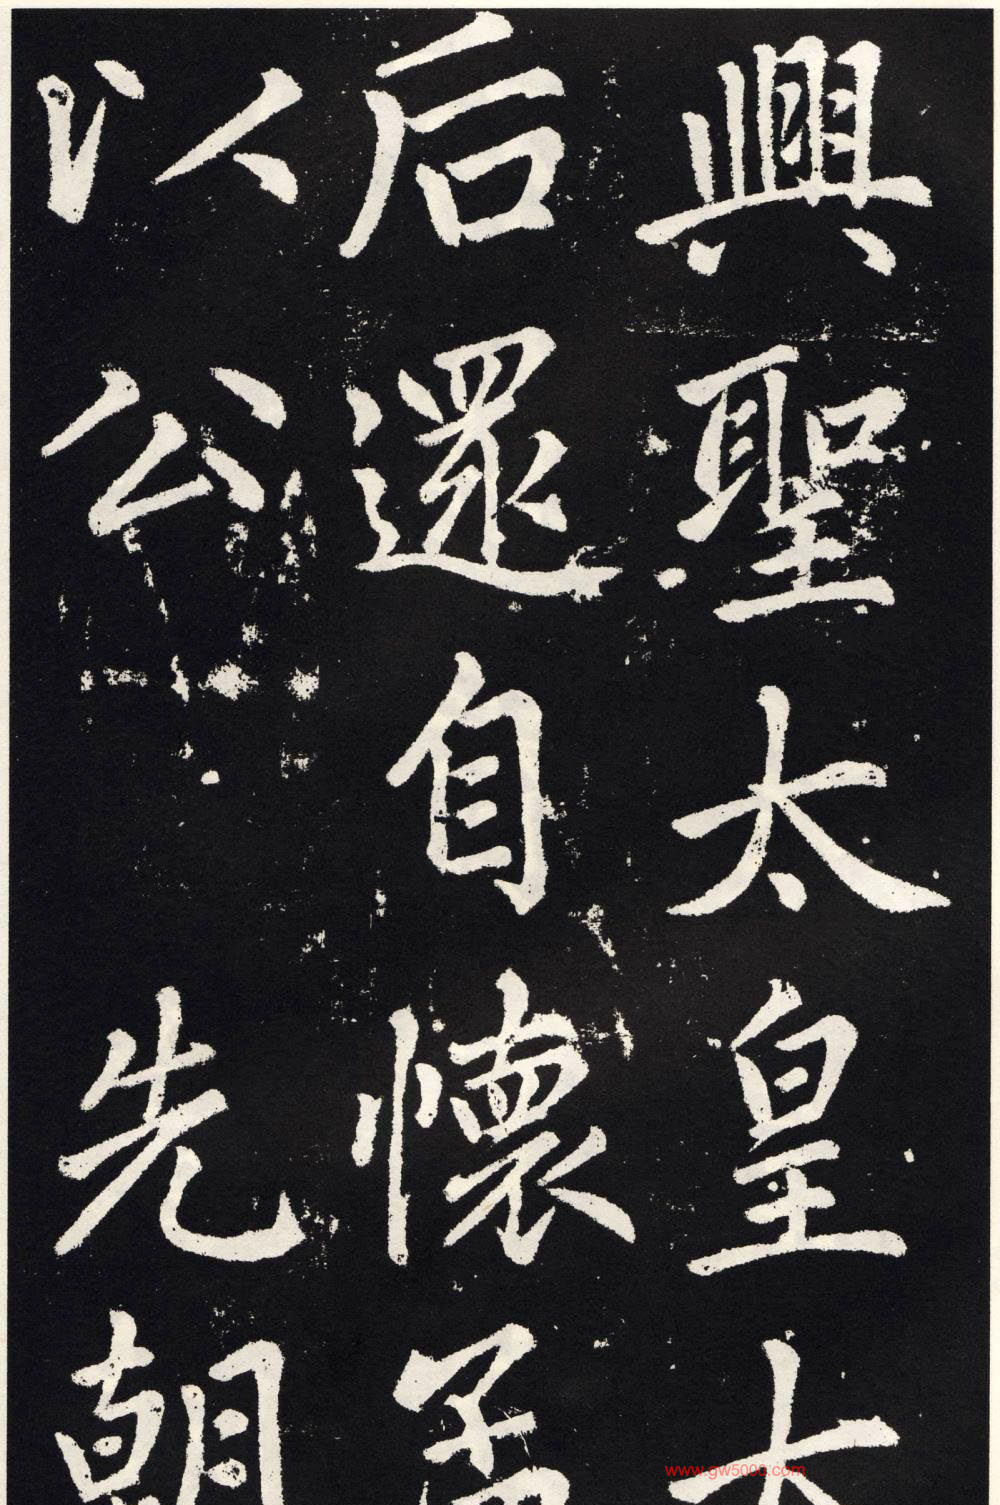 興聖太皇太
后還自懷孟
以公先朝
www.gw5000.com